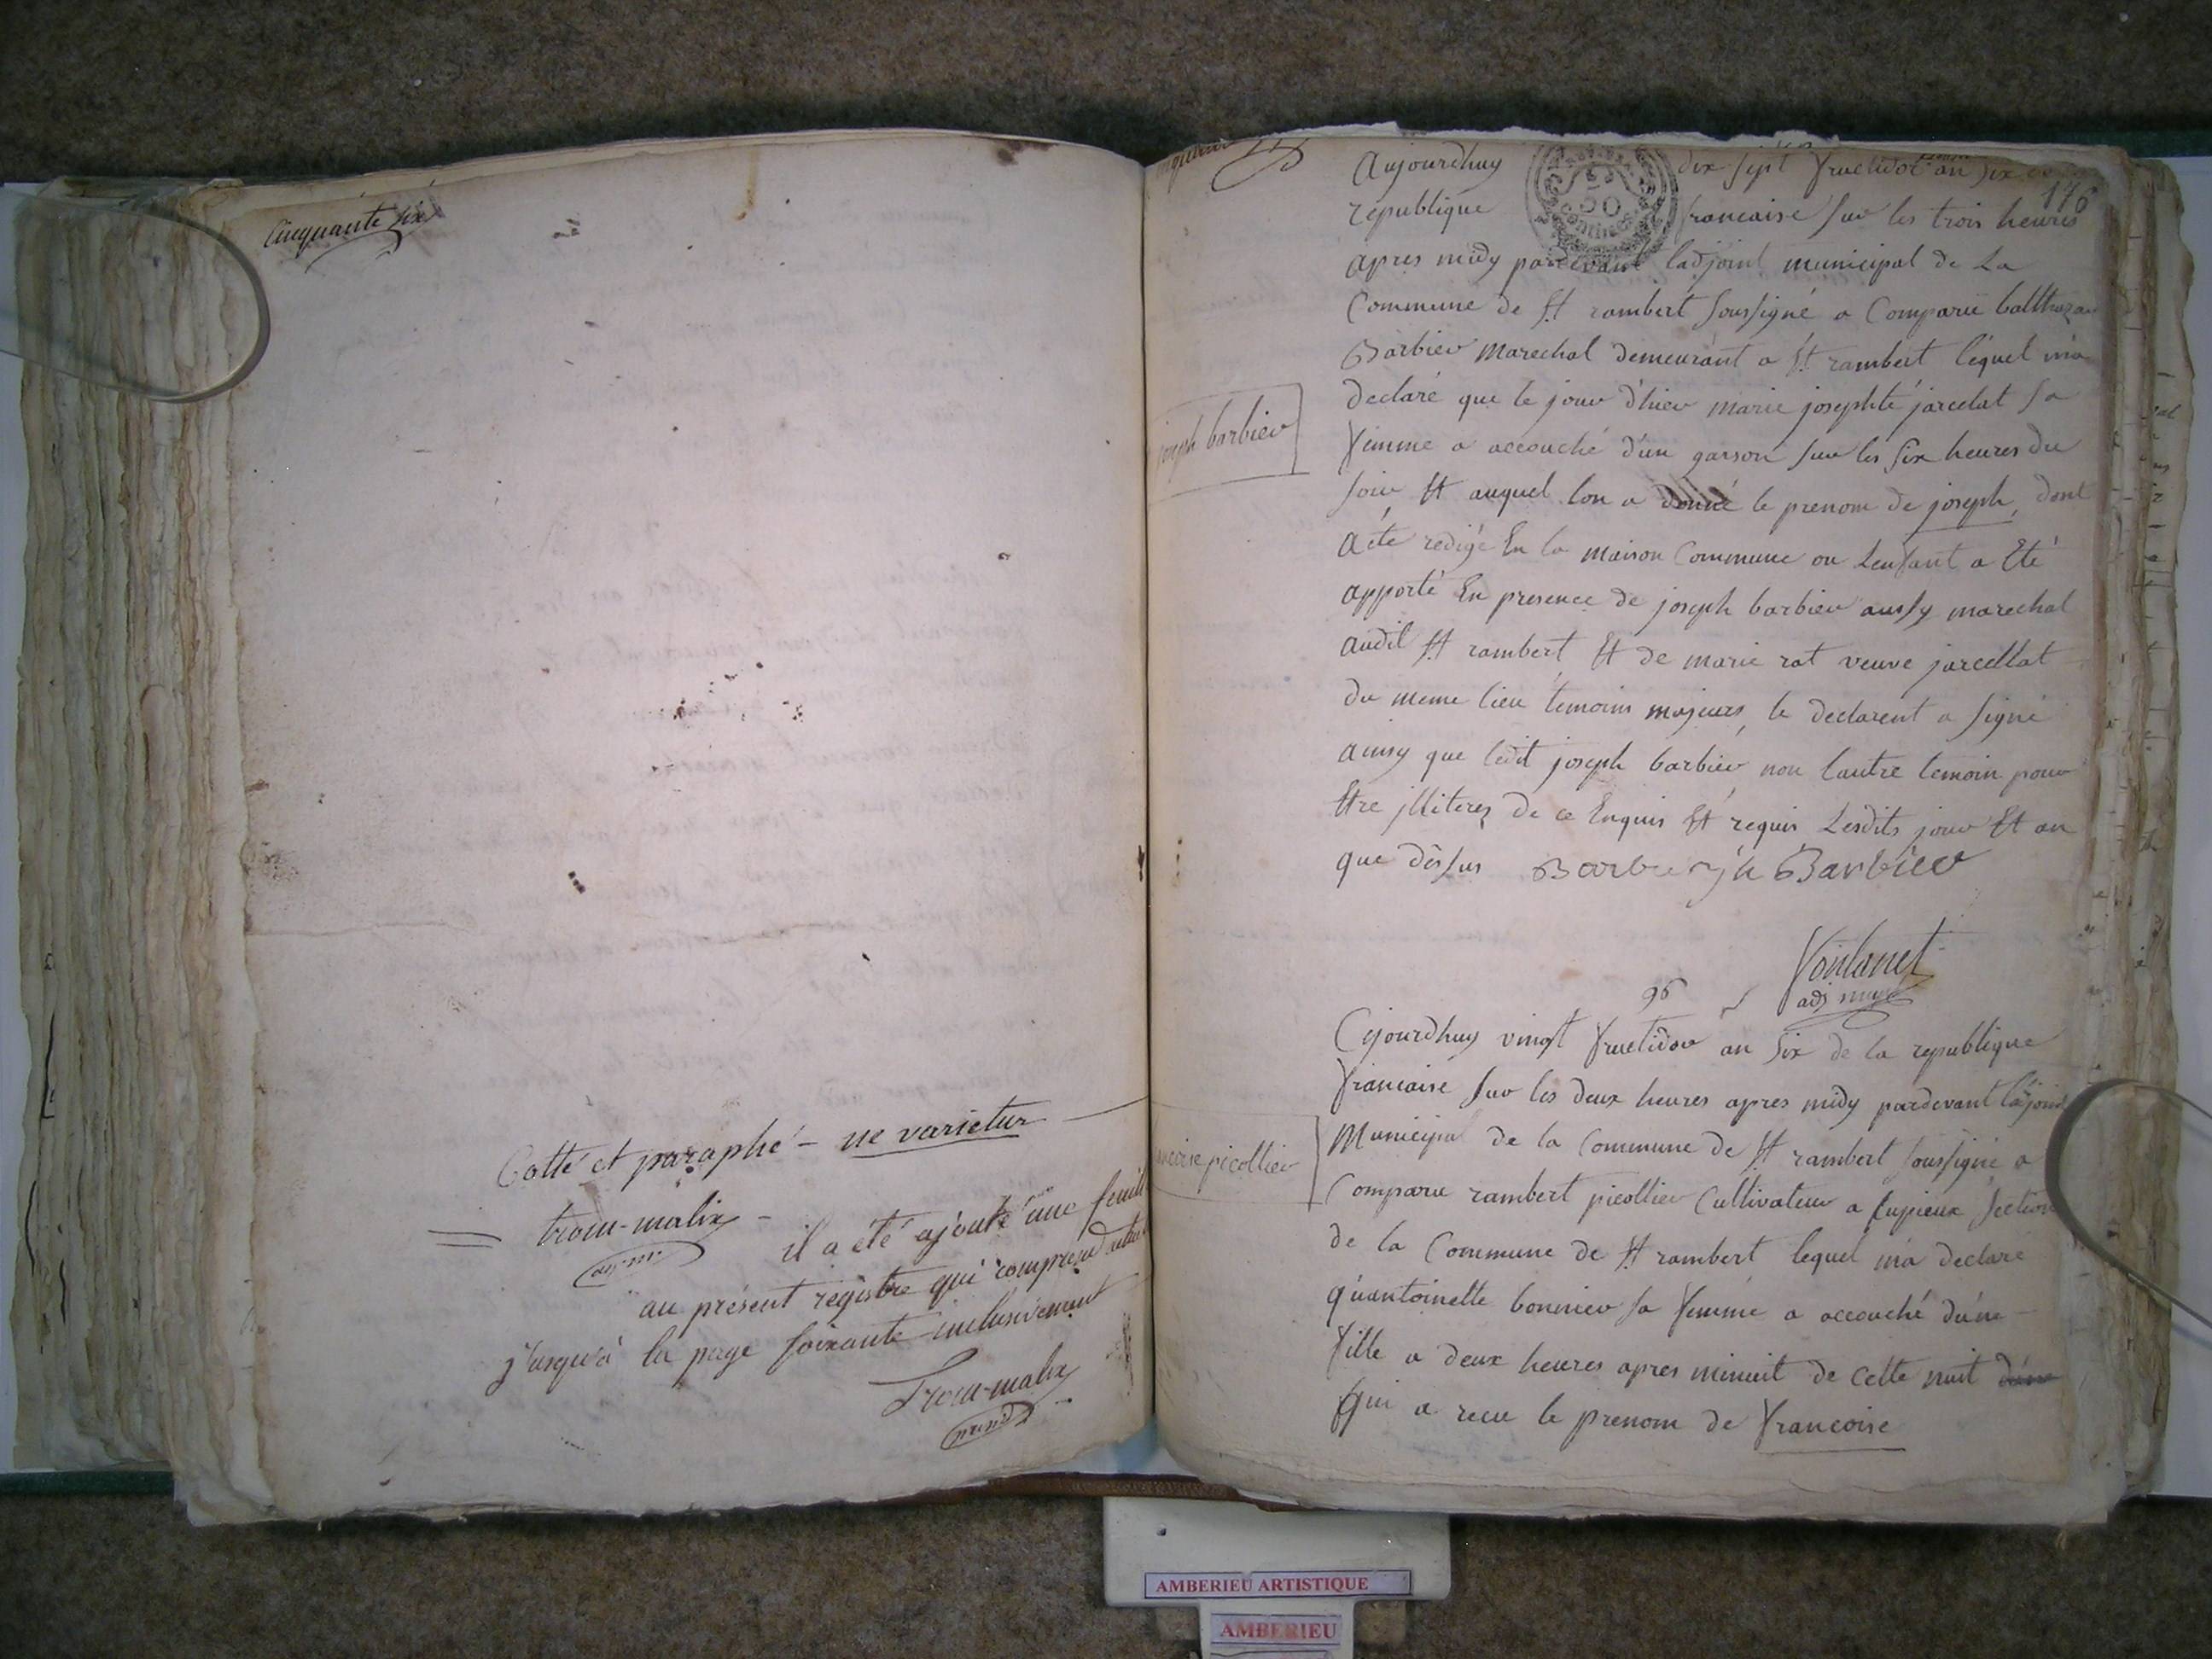 Cinquante six
Cotté et paraphé - ne varietur
trom-malix -
il a été ajouté une feuill
au présent registre qui comprend
j'usqu'à la page soixante inclusivement
Trom-malix
Aujourdhuy dix sept fructidor an six
176
republique francaise sur les trois heures
apres midy pardevant ladjoint municipal de La
Commune de St rambert soussigné a Comparü balthazar
Barbier marechal demeurant a St rambert lequel m'a
declaré que le jour d'hier marie josephte jarcelat sa
femme a accouché d'un garson sur les six heures du
soir, Et auquel lon a donné le prenom de joseph, dont
acte redigé En la maison Commune ou Lenfant a Eté
apporté En presence de joseph barbier aussy marechal
audit St rambert, Et de marie rat veuve jarcellat
du meme lieu temoins majeurs, le declarent a signé
ainsy que ledit joseph barbier non lautre temoin pour
Etre jlliterez de ce Enquis Et requis Lesdits jour Et an
que dessus Barbier jh Barbier
joseph barbier
adj mup
96
Cejourdhuy vingt fructidor an six de la republique
francaise sur les deux heures apres midy pardevant l'ajoint
Municipal de la Commune de St rambert soussigné a
Comparu rambert picollier Cultivateur a Lupieux section
de la Commune de St rambert lequel m'a declaré
qu'antoinette bonnier sa femme a accouché d'une
fille a deux heures apres minuit de cette nuit d'une
qui a recu le prenom de francoise
picollier
AMBERIEU ARTISTIQUE
AMBERIEU